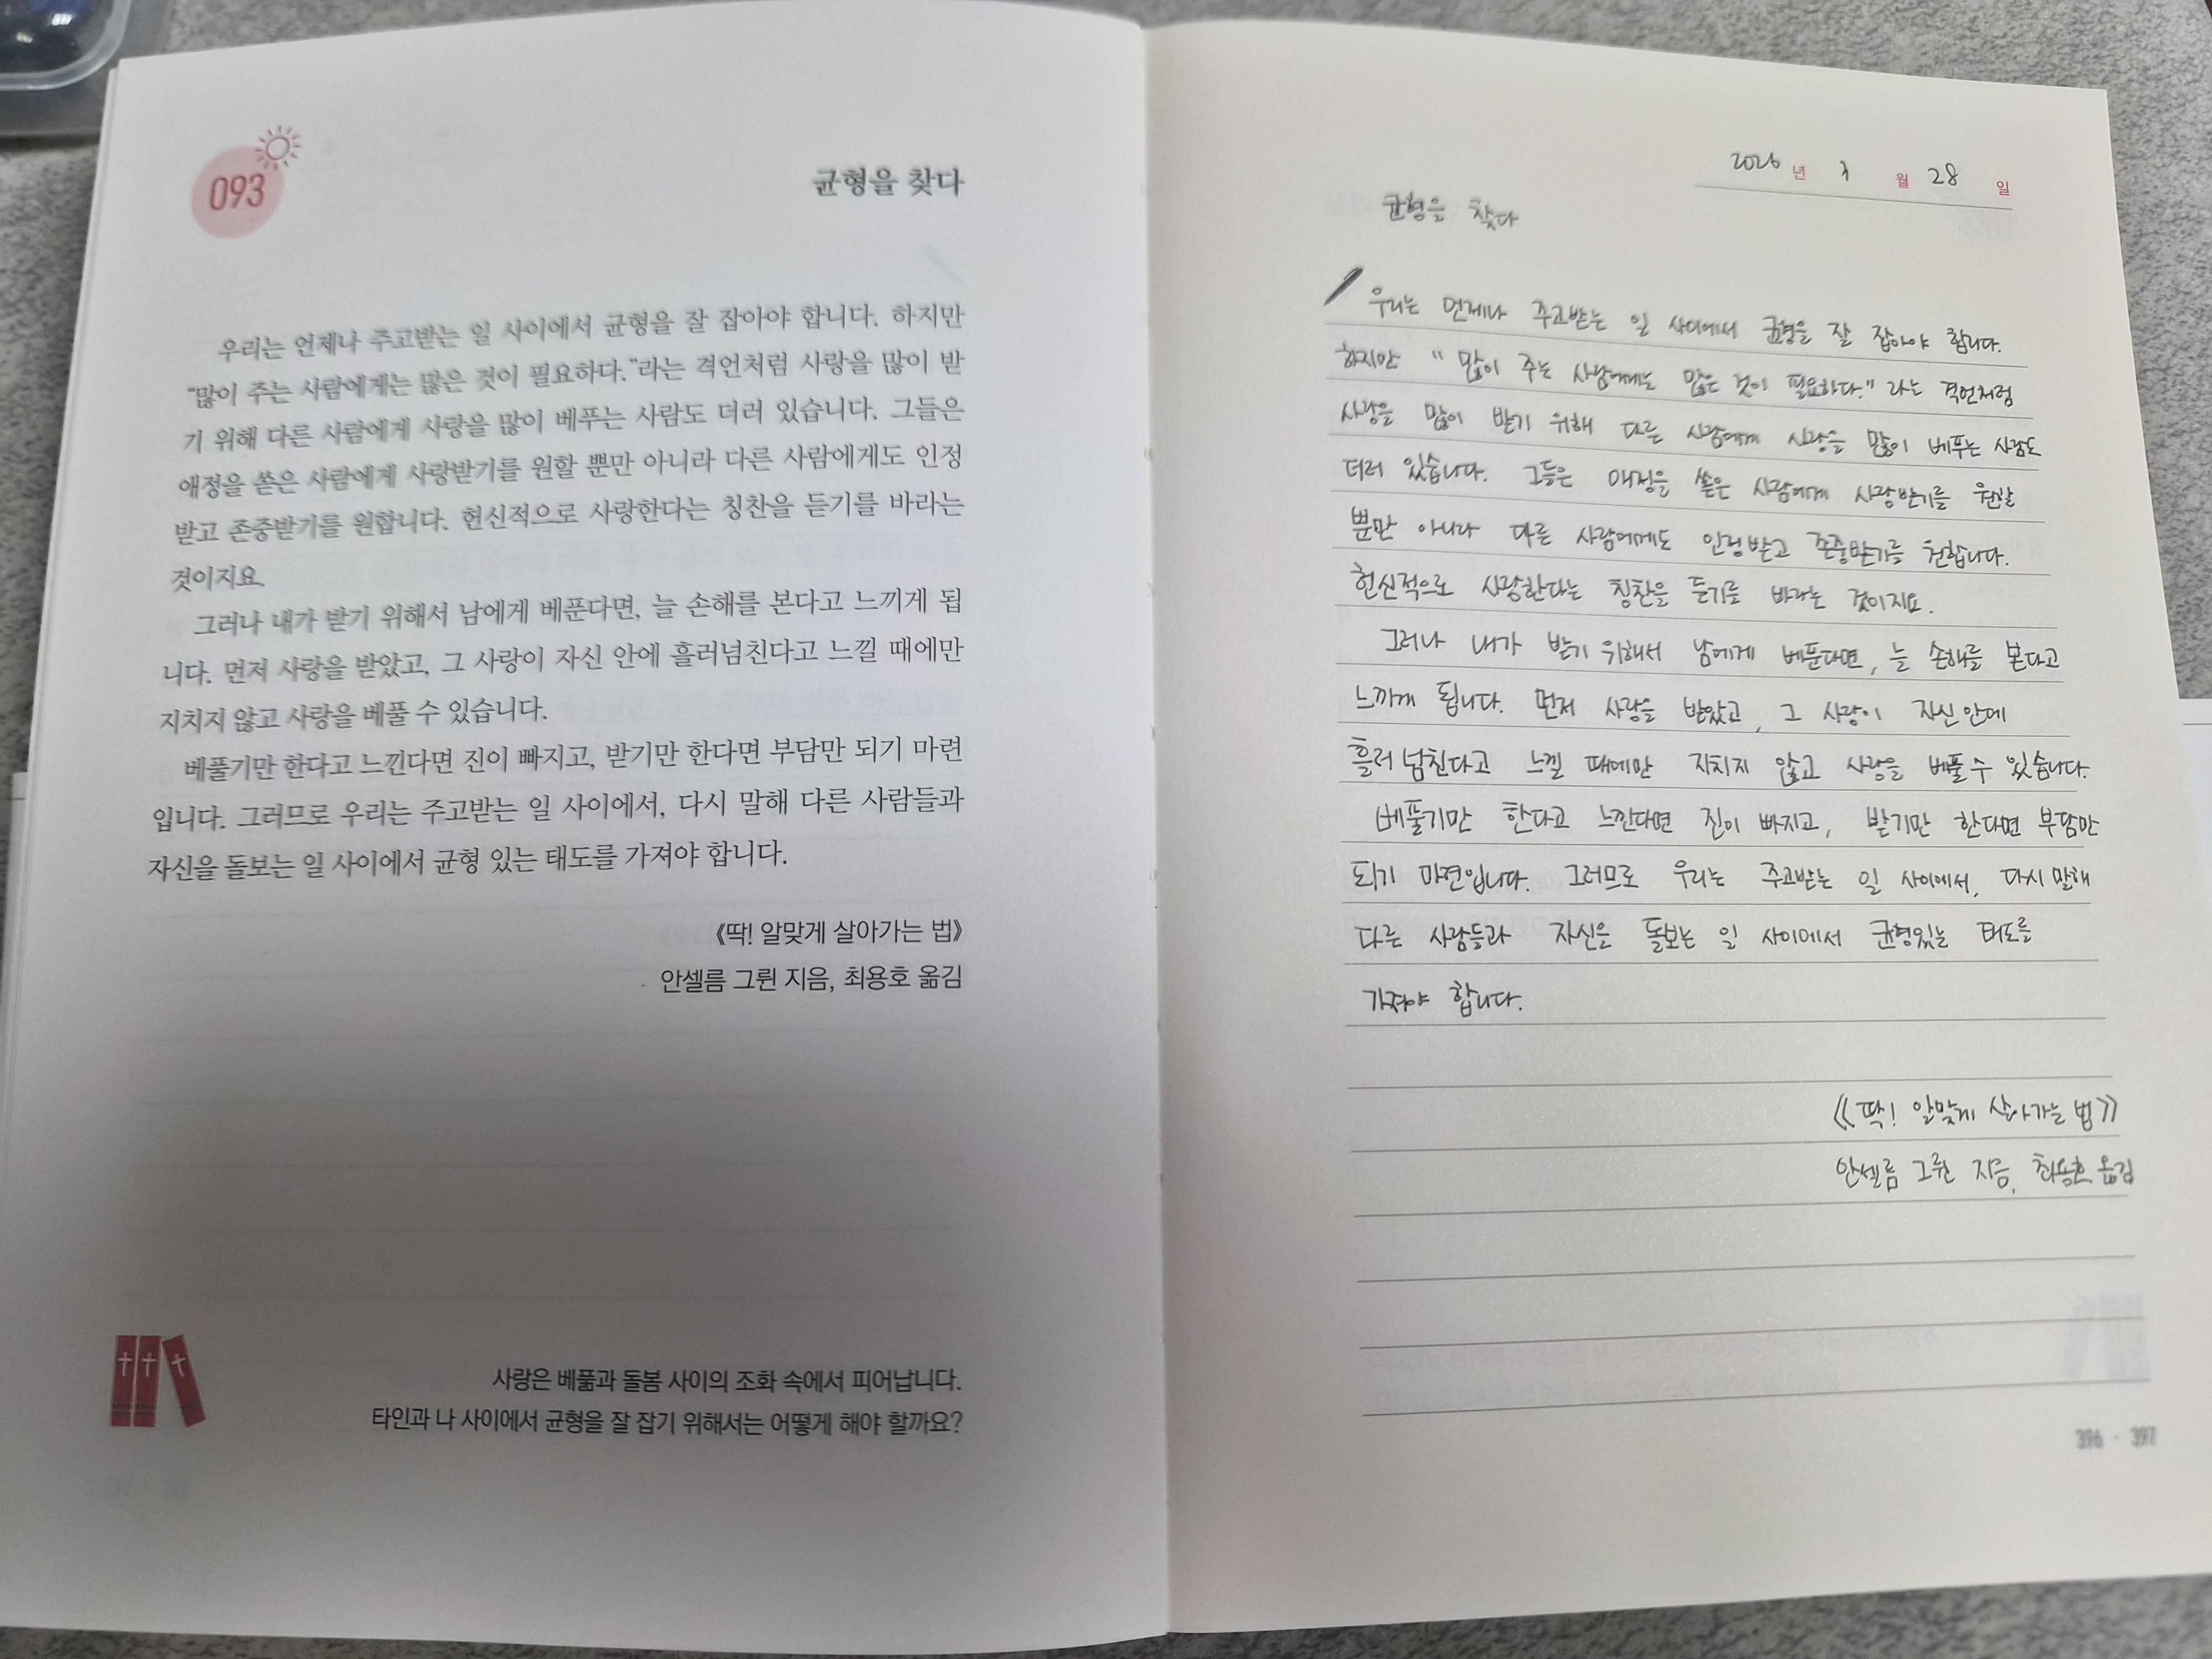 093
균형을 찾다
우리는 언제나 주고받는 일 사이에서 균형을 잘 잡아야 합니다. 하지만
“많이 주는 사람에게는 많은 것이 필요하다.”라는 격언처럼 사랑을 많이 받
기 위해 다른 사람에게 사랑을 많이 베푸는 사람도 더러 있습니다. 그들은
애정을 쏟은 사람에게 사랑받기를 원할 뿐만 아니라 다른 사람에게도 인정
받고 존중받기를 원합니다. 헌신적으로 사랑한다는 칭찬을 듣기를 바라는
것이지요.
그러나 내가 받기 위해서 남에게 베푼다면, 늘 손해를 본다고 느끼게 됩
니다. 먼저 사랑을 받았고, 그 사랑이 자신 안에 흘러넘친다고 느낄 때에만
지치지 않고 사랑을 베풀 수 있습니다.
베풀기만 한다고 느낀다면 진이 빠지고, 받기만 한다면 부담만 되기 마련
입니다. 그러므로 우리는 주고받는 일 사이에서, 다시 말해 다른 사람들과
자신을 돌보는 일 사이에서 균형 있는 태도를 가져야 합니다.
《딱! 알맞게 살아가는 법》
안셀름 그륀 지음, 최용호 옮김
사랑은 베풂과 돌봄 사이의 조화 속에서 피어납니다.
타인과 나 사이에서 균형을 잘 잡기 위해서는 어떻게 해야 할까요?
2026 년 월 28 일
균형을 찾다
우리는 언제나 주고받는 일 사이에서 균형을 잘 잡아야 합니다.
하지만 “많이 주는 사람에게는 많은 것이 필요하다.”라는 격언처럼
사랑을 많이 받기 위해 다른 사람에게 사랑을 많이 베푸는 사람도
더러 있습니다. 그들은 애정을 쏟은 사람에게 사랑받기를 원할
뿐만 아니라 다른 사람에게도 인정받고 존중받기를 원합니다.
헌신적으로 사랑한다는 칭찬을 듣기를 바라는 것이지요.
그러나 내가 받기 위해서 남에게 베푼다면, 늘 손해를 본다고
느끼게 됩니다. 먼저 사랑을 받았고, 그 사랑이 자신 안에
흘러넘친다고 느낄 때에만 지치지 않고 사랑을 베풀 수 있습니다.
베풀기만 한다고 느낀다면 진이 빠지고, 받기만 한다면 부담만
되기 마련입니다. 그러므로 우리는 주고받는 일 사이에서, 다시 말해
다른 사람들과 자신을 돌보는 일 사이에서 균형있는 태도를
가져야 합니다.
《딱! 알맞게 살아가는 법》
안셀름 그륀 지음, 최용호 옮김
396 · 397